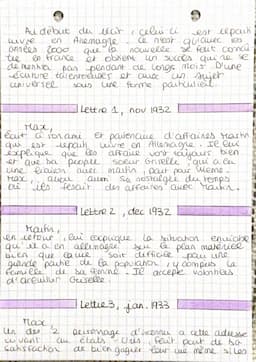 Au début du récit, celui ci est reparti
vivre en Allemagne. Ce n'est qu'avec les
années 2000 que la nouvelle se fait connaî
tre en France et obtient un succès qui ne se
dément pas pendant de longs mois. D'une
écriture talentueuse et avec un sujet
universel sous une forme particulière.
Lettre 1, nov 1932
Max,
écrit à son ami et partenaire d'affaires Martin
qui est reparti vivre en Allemagne. Il lui
explique que les affaires vont toujours bien
et que sa soeur Griselle, qui a eu
une liaison avec Martin, part pour Vienne.
Max, a nostalgie du temps
où ils fesait des affaires avec Martin.
Lettre 2, dec 1932
Martin,
en retour, lui explique la situation
en allemagne sur le plan matériel
bien que ça soit difficile pour une
grande partie de la population, y compris la
famille de sa femme. Il accepte volontiers
d'accueillir Griselle.
Lettre 3, jan. 1933
Max
Un des 2 personnage d'
vivant au états-Unis fait part de sa
satisfaction de